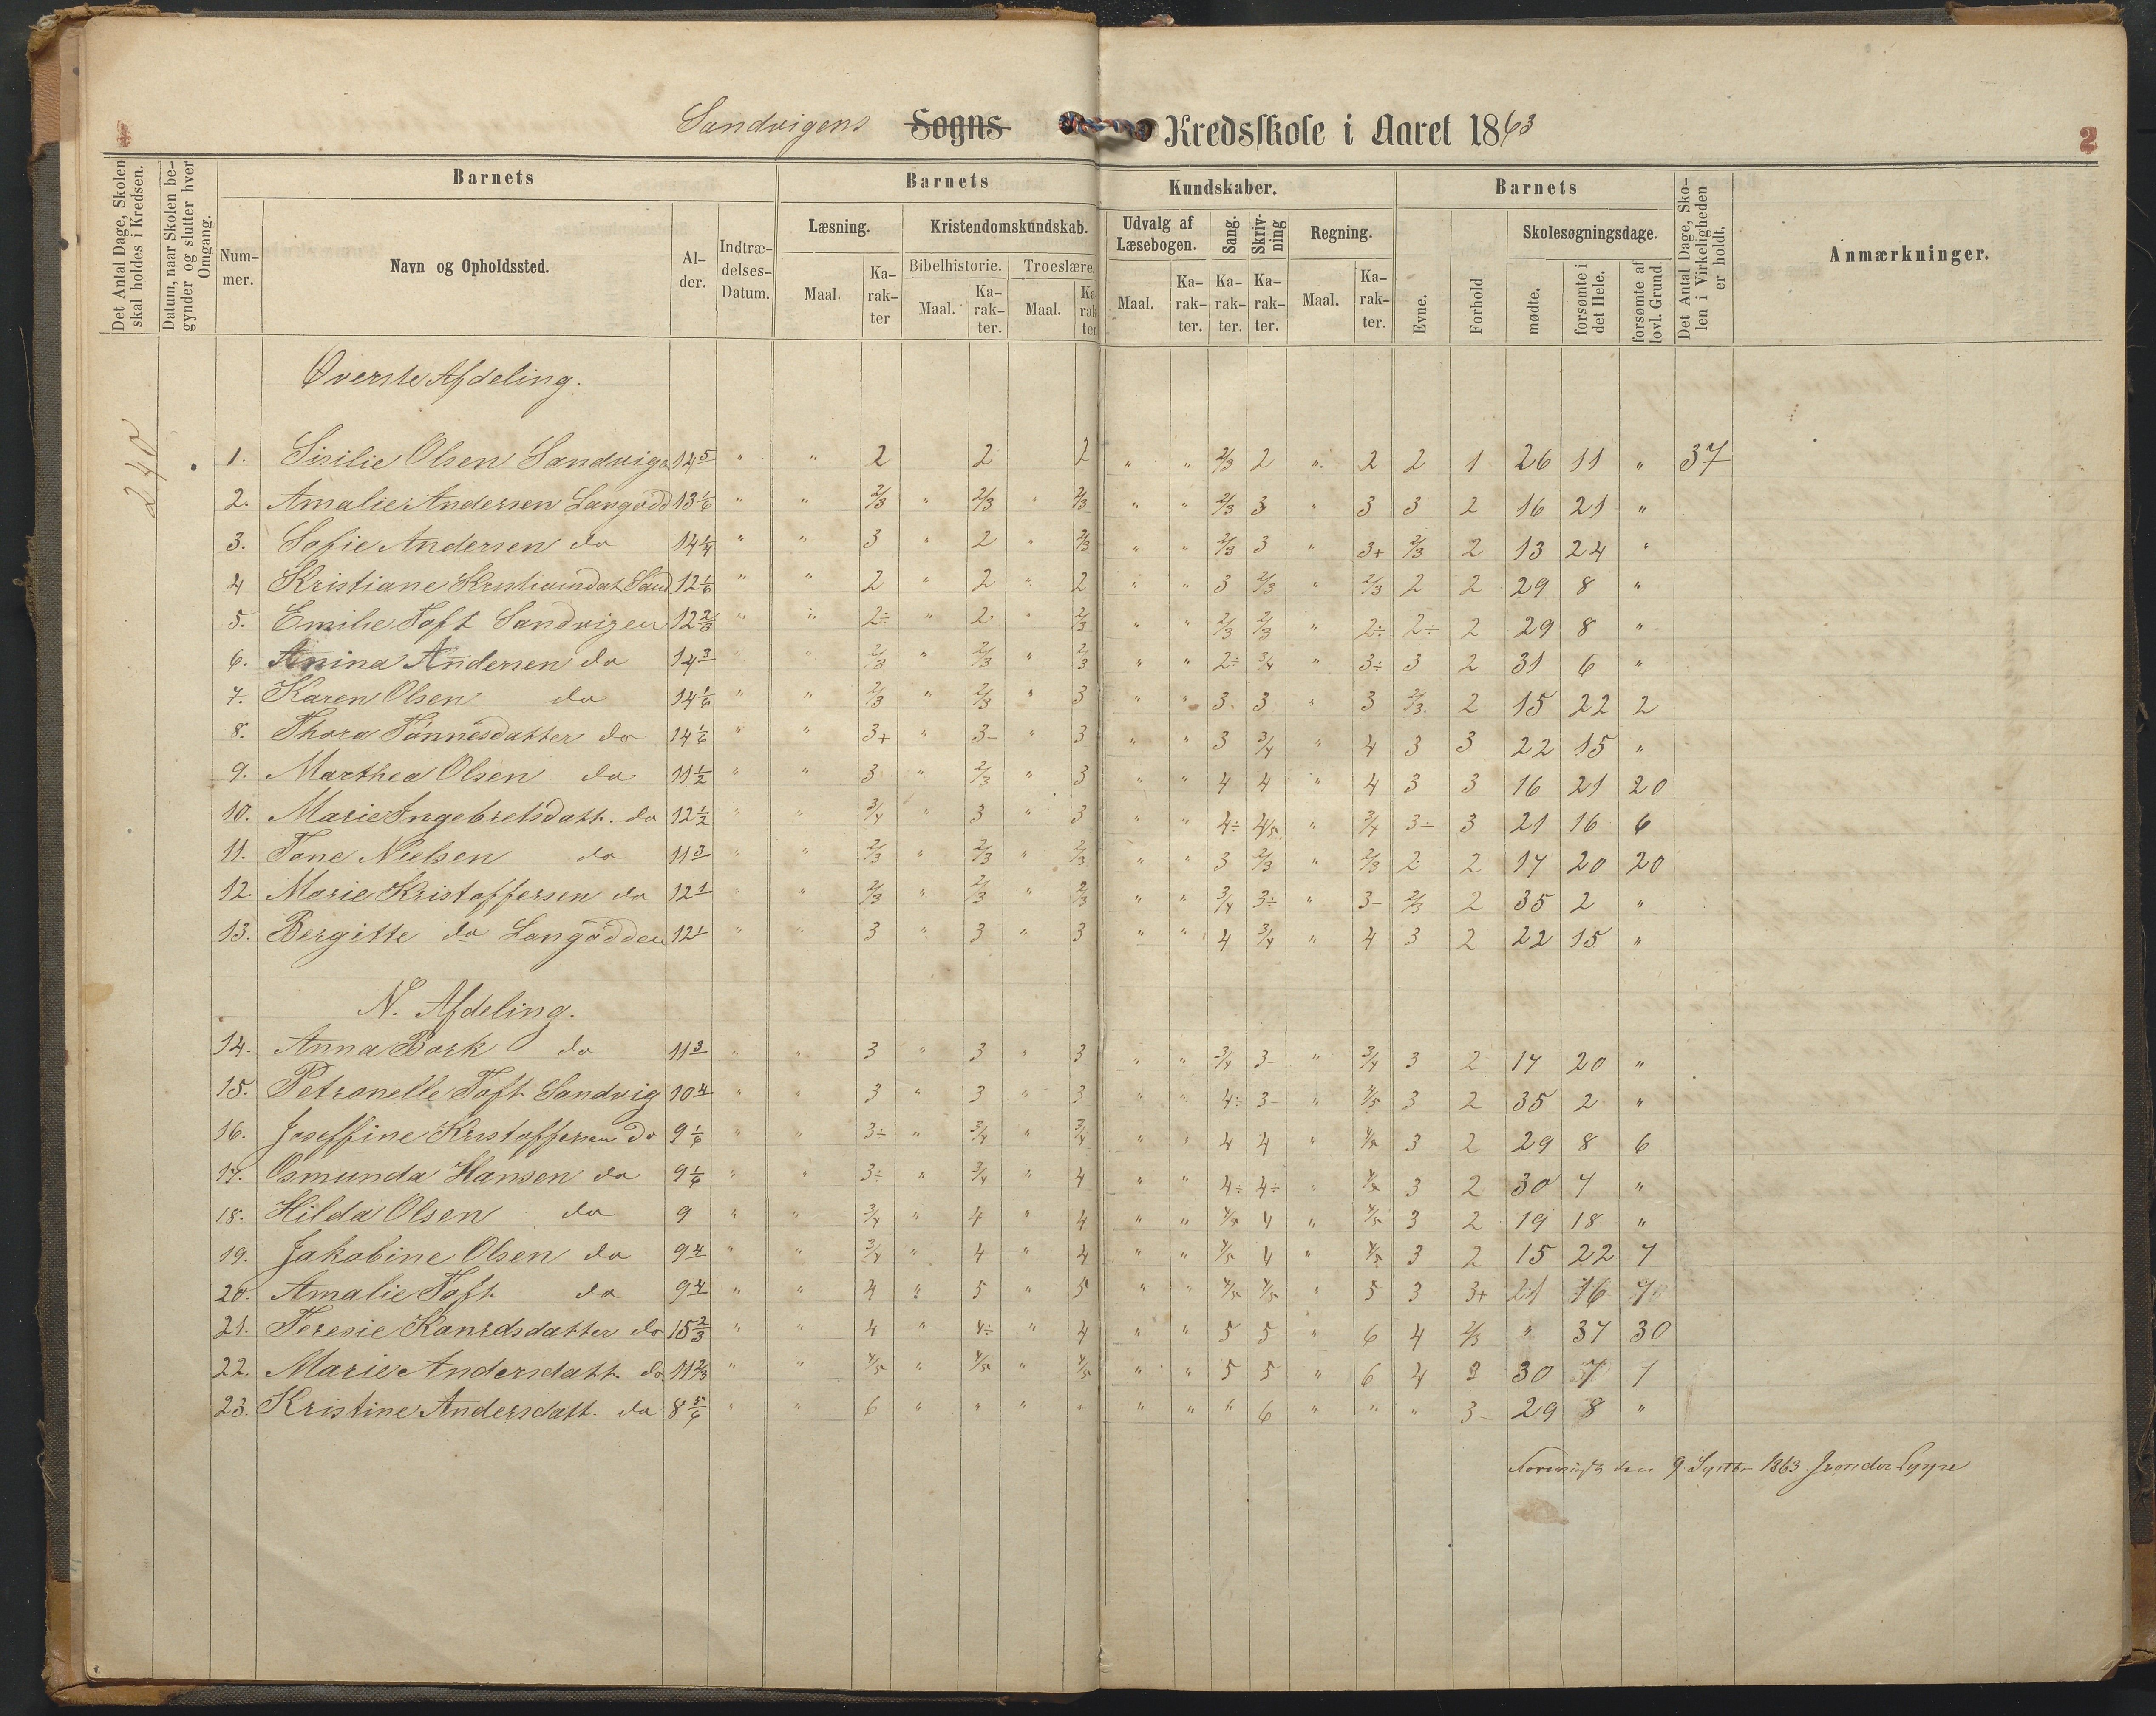 Sandvigens Sogns Kredsskole i Aaret 1863
1 2
Det Antal Dage, Skolen skal holdes i Kredsen.
Datum, naar Skolen begynder og slutter hver Omgang.
Barnets
Nummer.
Navn og Opholdssted.
Alder.
Indtrædelses-Datum.
Barnets Kundskaber.
Læsning.
Maal. Karakter
Kristendomskundskab.
Bibelhistorie.
Maal. Karakter.
Troeslære.
Maal. Karakter
Udvalg af Læsebogen.
Maal. Karakter.
Sang. Karakter.
Skrivning Karakter.
Regning.
Maal. Karakter.
Barnets
Evne.
Forhold
Skolesøgningsdage.
mødte.
forsømte i det Hele.
forsømte af lovl. Grund.
Det Antal Dage, Skolen i Virkeligheden er holdt.
Anmærkninger.
240
Øverste Afdeling.
1. Sisilie Olsen Sandvig 14 5 " " 2 2 2 " " 2/3 2 " 2 2 1 26 11 " 37
2. Amalie Andersen Langødd 13 1/6 " " 2/3 " 2/3 " 2/3 " " 2/3 3 " 3 3 2 16 21 "
3. Sofie Andersen do 14 1/4 " " 3 " 2 " 2/3 " " 2/3 3 " 3+ 2/3 2 13 24 "
4 Kristiane Sand 12 1/6 " " 2 " 2 " 2 " " 3 2/3 " 2/3 2 2 29 8 "
5. Emilie Toft Sandvigen 12 2/3 " " 2÷ " 2 " 2/3 " " 2/3 2/3 " 2÷ 2÷ 2 29 8 "
6. Anina Andersen do 14 3 " " 2/3 " 2/3 " 2/3 " " 2÷ 3/4 " 3÷ 3 2 31 6 "
7. Karen Olsen do 14 1/6 " " 2/3 " 2/3 " 3 " " 3 3 " 3 2/3 2 15 22 2
8. Thora Tønnesdatter do 14 1/6 " " 3+ " 3- " 3 " " 3 3/4 " 4 3 3 22 15 "
9. Marthea Olsen do 11 1/2 " " 3 " 2/3 " 3 " " 4 4 " 4 3 3 16 21 20
10. Marie Ingebretsdatt. do 12 1/2 " " 3/4 " 3 " 3 " " 4÷ 4/5 " 3/4 3÷ 3 21 16 6
11. Tone Nielsen do 11 3 " " 2/3 " 2/3 " 2/3 " " 3 2/3 " 2/3 2 2 17 20 20
12. Marie Kristoffersen do 12 1 " " 2/3 " 2/3 " 2/3 " " 3/4 3÷ " 3- 2/3 2 35 2 "
13. Bergitte do Langødden 12 1 " " 3 " 3 " 3 " " 4 3/4 " 4 3 2 22 15 "
N. Afdeling.
14. Anna Bork do 11 3 " " 3 " 3 " 3 " " 3/4 3- " 3/4 3 2 17 20 "
15. Petronelle Toft Sandvig 10 4 " " 3 " 3 " 3 " " 4÷ 3- " 4/5 3 2 35 2 "
16. Joseffine Kristoffersen Do 9 1/6 " " 3÷ " 3/4 " 3/4 " " 4 4 " 4/5 3 2 29 8 6
17. Osmunda Hansen do 9 1/6 " " 3÷ " 3/4 " 4 " " 4÷ 4÷ " 4/5 3 2 30 7 "
18. Hilda Olsen do 9 " " 3/4 " 4 " 4 " " 4/5 4 " 4/5 3 2 19 18 "
19. Jakobine Olsen do 9 4 " " 3/4 " 4 " 4 " " 4/5 4 " 4/5 3 2 15 22 7
20. Amalie Toft do 9 4 " " 4 " 5 " 5 " " 4/5 4/5 " 5 3 3+ 21 16 7
21. Teresie Kanrdsdatter do 15 2/3 " " 4 " 4÷ " 4 " " 5 5 " 6 4 2/3 " 37 30
22. Marie Andersdatt. do 11 2/3 " " 4/5 " 4/5 " 4/5 " " 5 5 " 6 4 3 30 7 7
23. Kristine Andersdatt. do 8 5/6 " " 6 " " " " " " " 6 " " " 3- 29 8 "
den 9 1863.